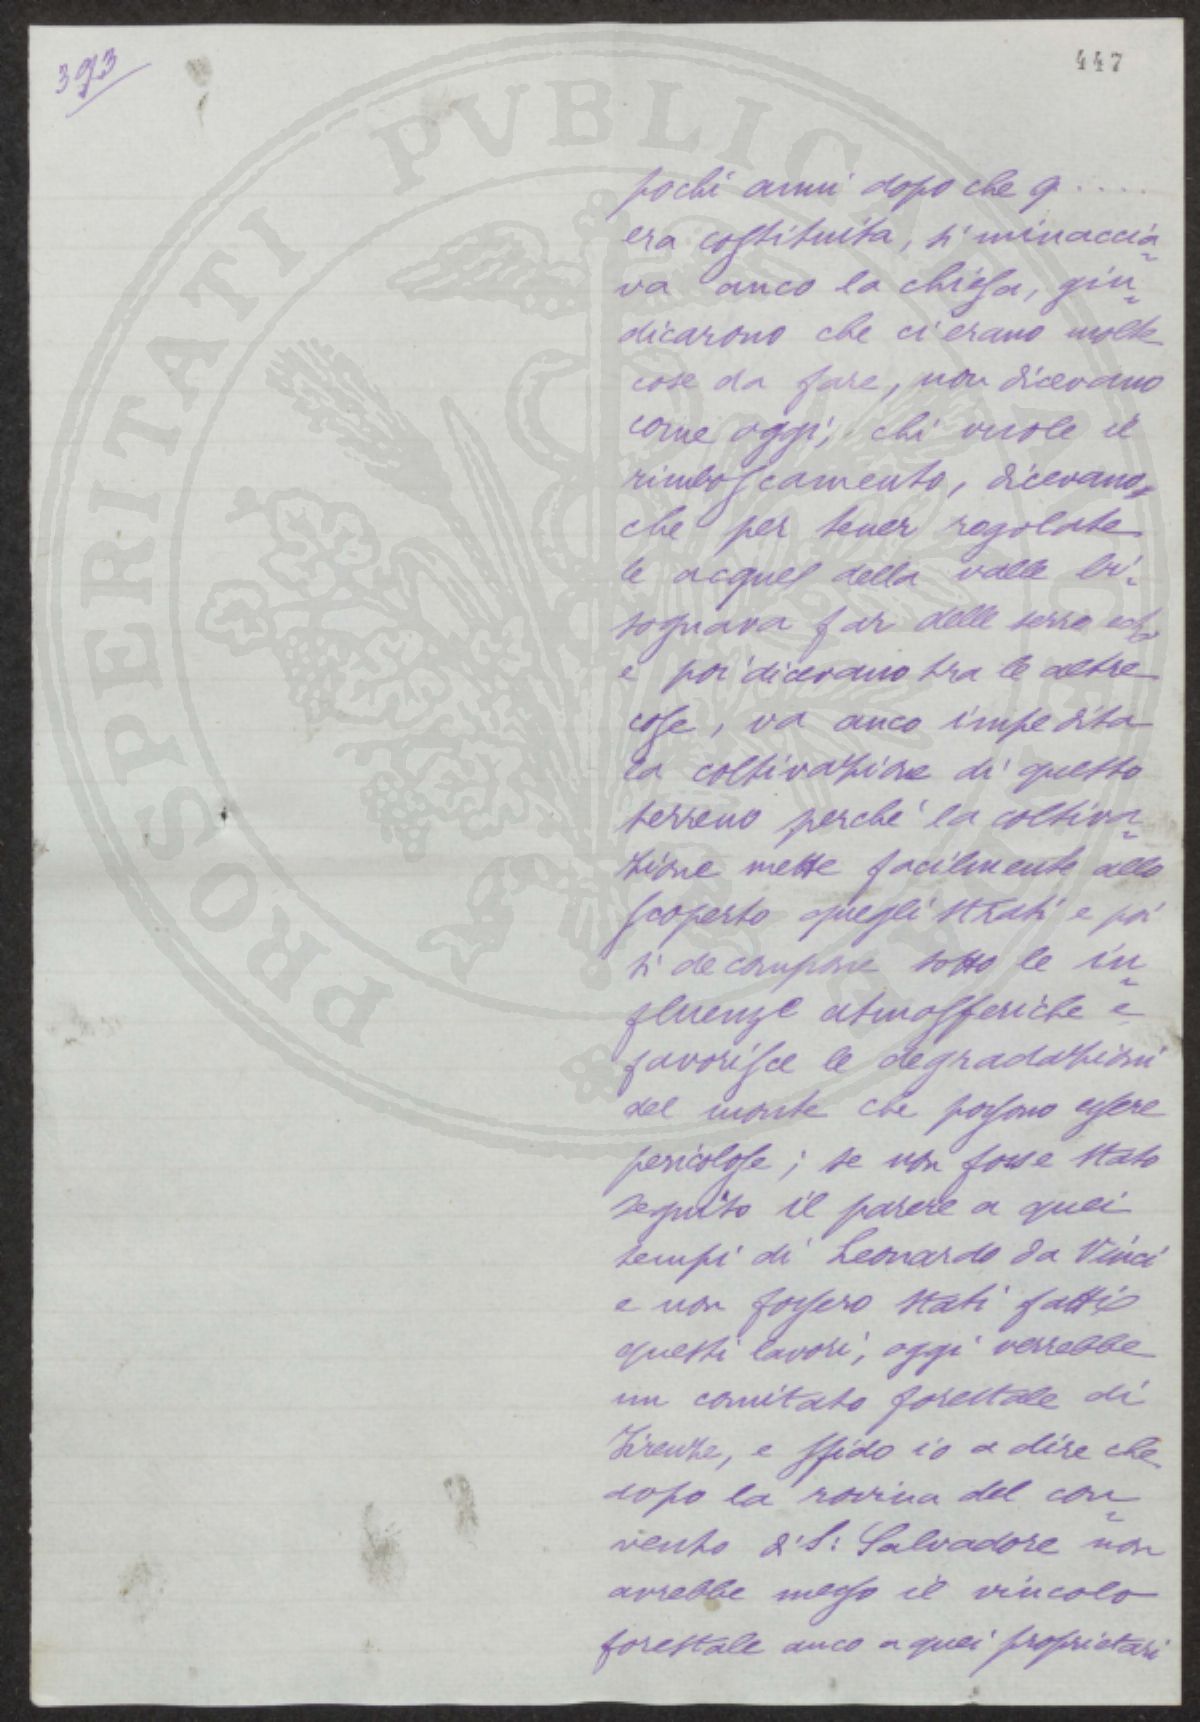 393
447
PROSPERITATI PVBLICAE
pochi anni dopo che q.....
era costituita, si minaccia-
va anco la chiesa, giu-
dicarono che ci erano molte
cose da fare, non dicevano
come oggi; chi vuole il
rimboscamento, dicevano,
che per tener regolate
le acque della valle bi-
sognava far delle serre ecc.
e poi dicevano tra le altre
cose, va anco impedita
la coltivazione di questo
terreno perché la coltiva-
zione mette facilmente allo
scoperto quegli strati e poi
si decompone sotto le in-
fluenze atmosferiche e
favorisce le degradazioni
del monte che possono essere
pericolose; se non fosse stato
seguito il parere a quei
tempi di Leonardo da Vinci
e non fossero stati fatti
questi lavori, oggi verrebbe
un comitato forestale di
Firenze, e sfido io a dire che
dopo la rovina del con-
vento di S: Salvadore non
avrebbe messo il vincolo
forestale anco a quei proprietari